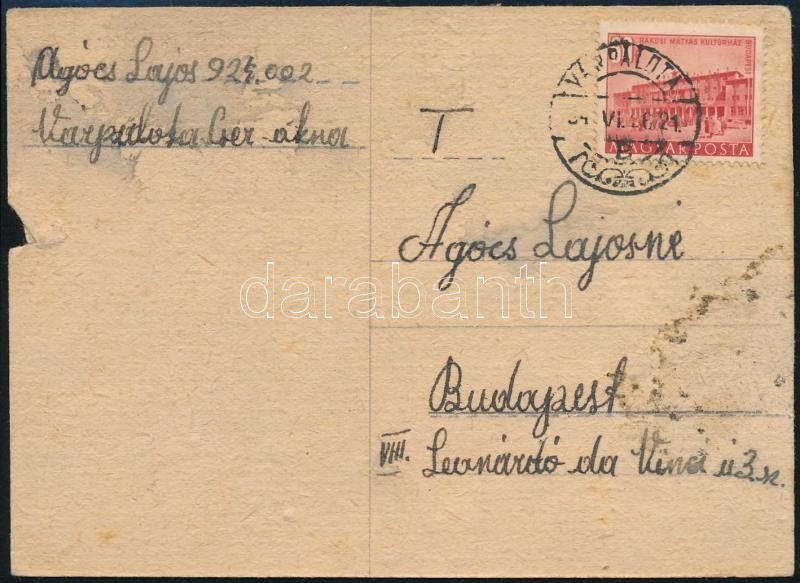 Agócs Lajos 924.002
Várpalota Cser-akna
RÁKOSI MÁTYÁS KULTÚRHÁZ
BUDAPEST
60
MAGYAR POSTA
VÁRPALOTA
VI. 21
T
Agócs Lajosné
darabanth
Budapest
VIII. Leonárdó da Vinci ú 3. sz.